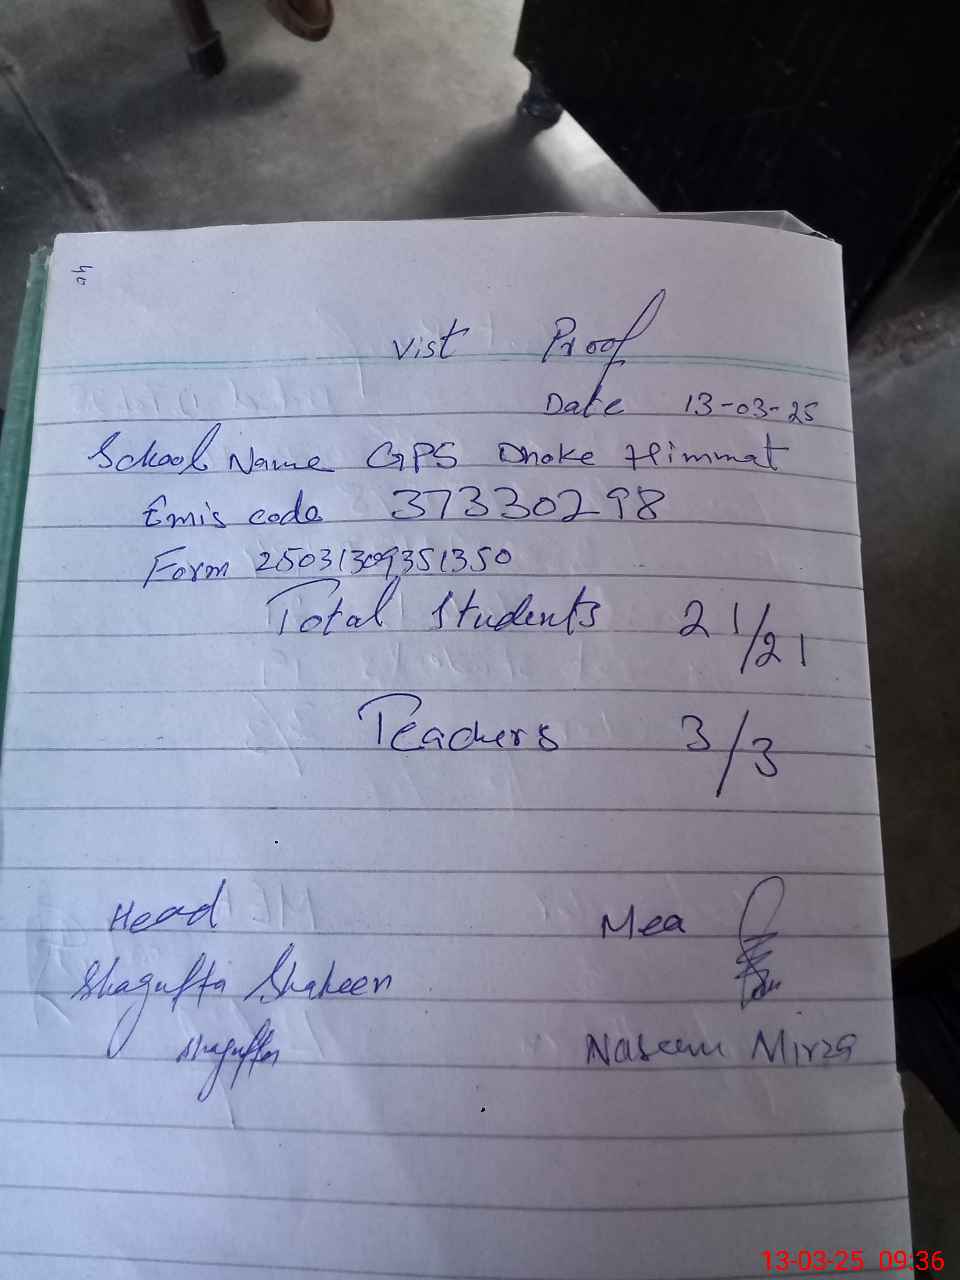 40
Vist Proof
Date 13-03-25
School Name GPS Dhoke Himmat
Emis code 37330298
Form 25031309351350
Total Students 21/21
Teachers 3/3
Head Mea
Shagufta Shaheen
Shagufta Naseem Mirza
13-03-25 09:36